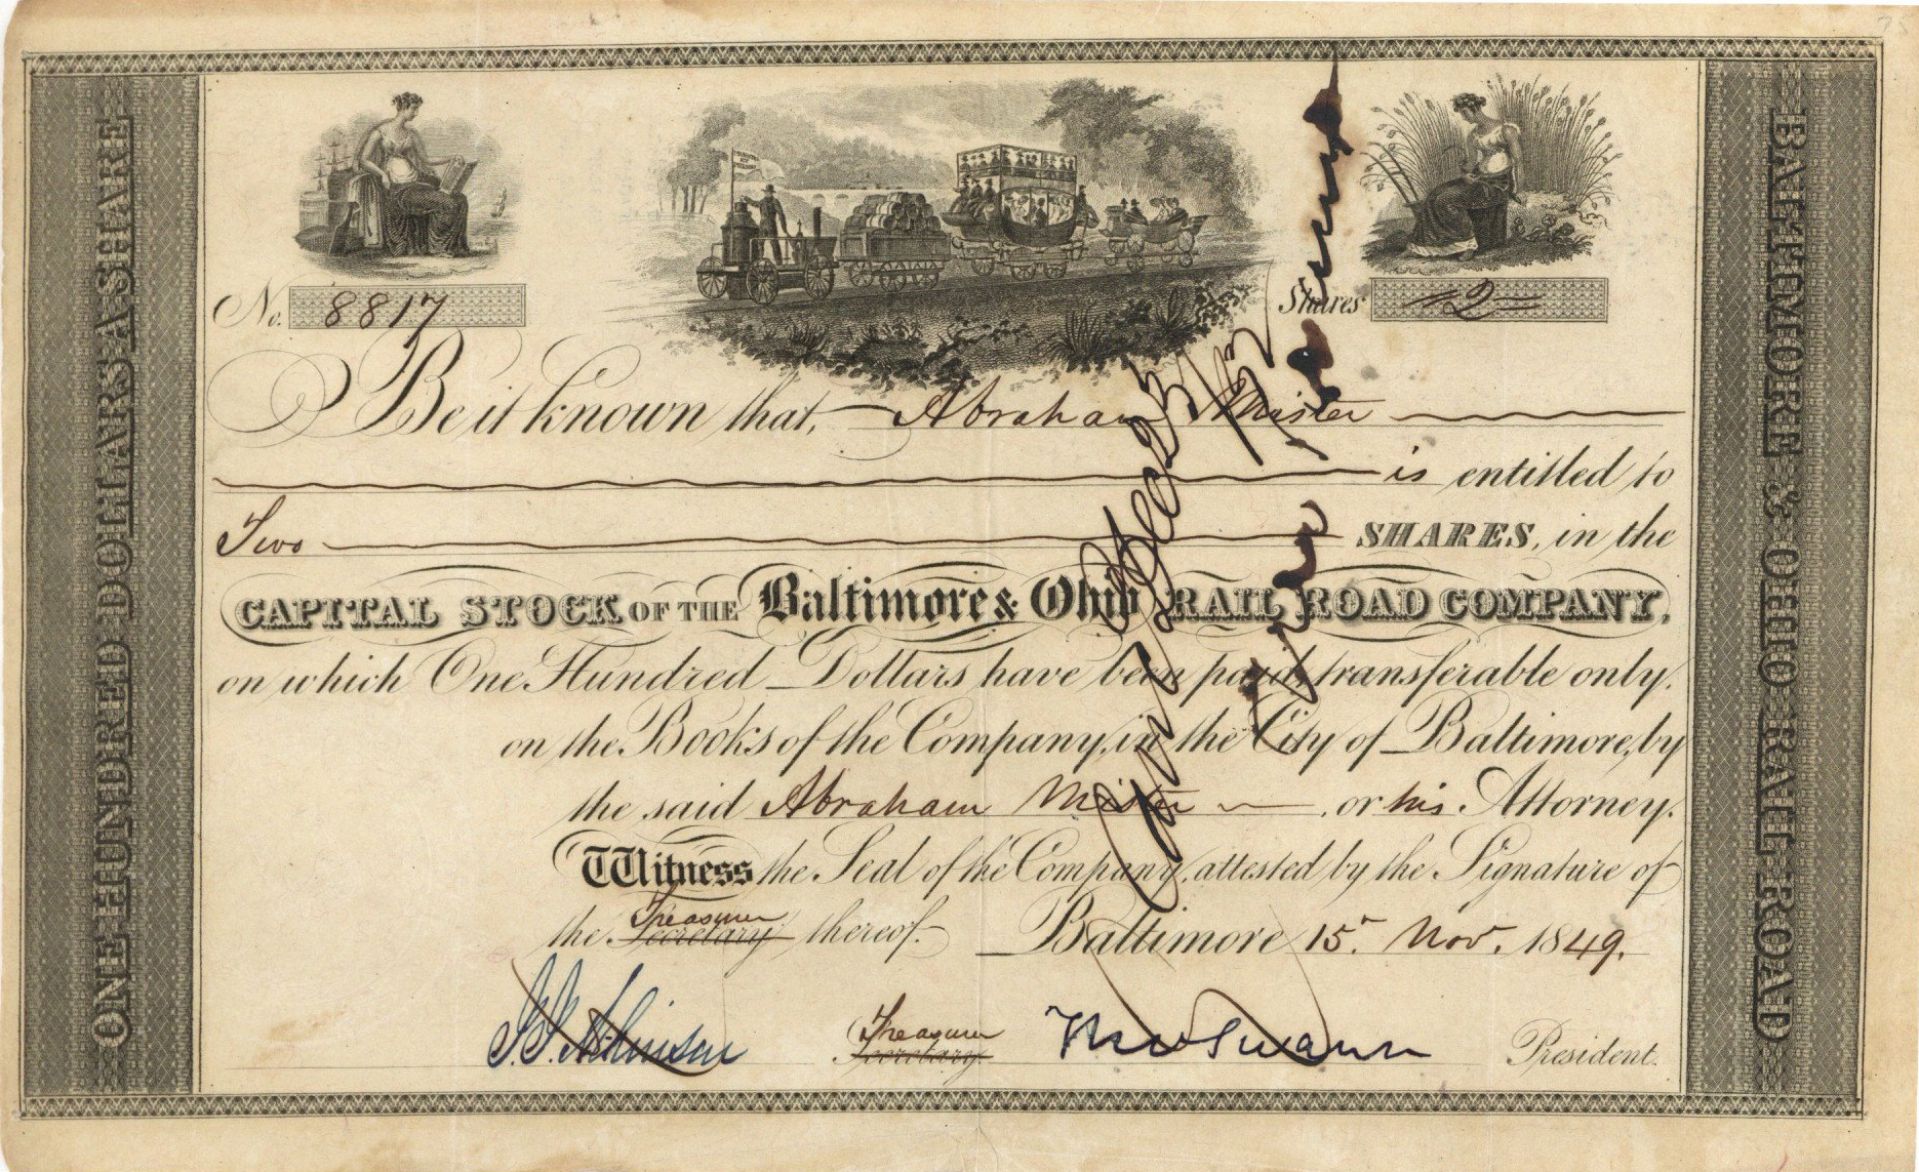 ONE HUNDRED DOLLARS A SHARE
No. 8817
Shares 2
Be it known that, Abraham Mister
is entitled to
Two SHARES, in the
CAPITAL STOCK OF THE Baltimore & Ohio RAIL ROAD COMPANY,
on which One Hundred Dollars have been paid, transferable only
on the Books of the Company, in the City of Baltimore, by
the said Abraham Mister or his Attorney.
Witness the Seal of the Company, attested by the Signature of
the Secretary Treasurer thereof. Baltimore 15 Nov. 1849.
J. I. Atkinson Secretary Treasurer Tho Swann President.
BALTIMORE & OHIO RAIL ROAD